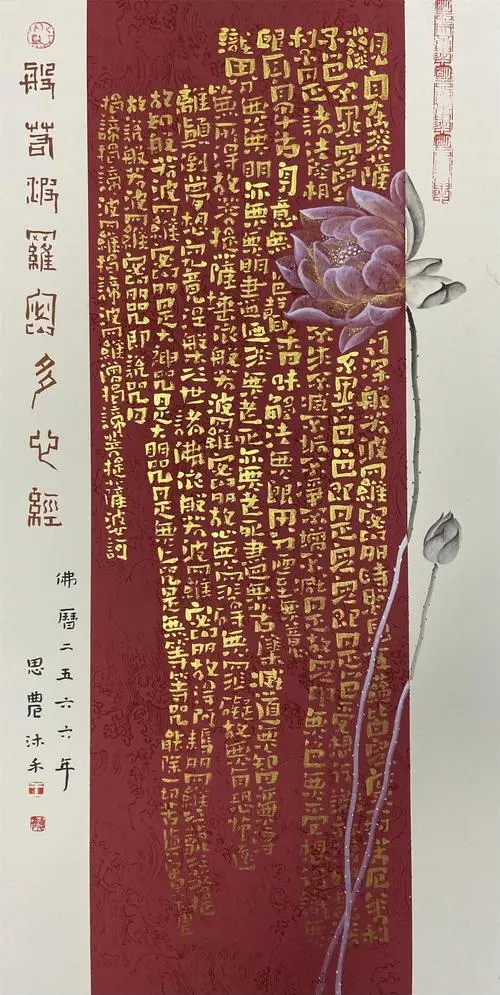 觀自在菩薩行深般若波羅蜜多時照見五蘊皆空度一切苦厄舍利
子色不異空空不異色色即是空空即是色受想行識
利子是諸法空相不生不滅不垢不淨不增不減是故空中無色無受想行識
眼耳鼻舌身意無色聲香味觸法無眼界乃至無意
識界無無明亦無無明盡乃至無老死亦無老死盡無苦集滅道無智亦無得
無所得故菩提薩埵依般若波羅蜜多故心無罣礙無罣礙故無有恐怖遠
離顛倒夢想究竟涅槃三世諸佛依般若波羅蜜多故得阿耨多羅三藐三菩提
故知般若波羅蜜多咒是大神咒是大明咒是無上咒是無等等咒能除一切苦真實不虛
故說般若波羅蜜多咒即說咒曰
揭諦揭諦波羅揭諦波羅僧揭諦菩提薩婆訶
般若波羅蜜多心經
佛曆二五六六年
思農沐手